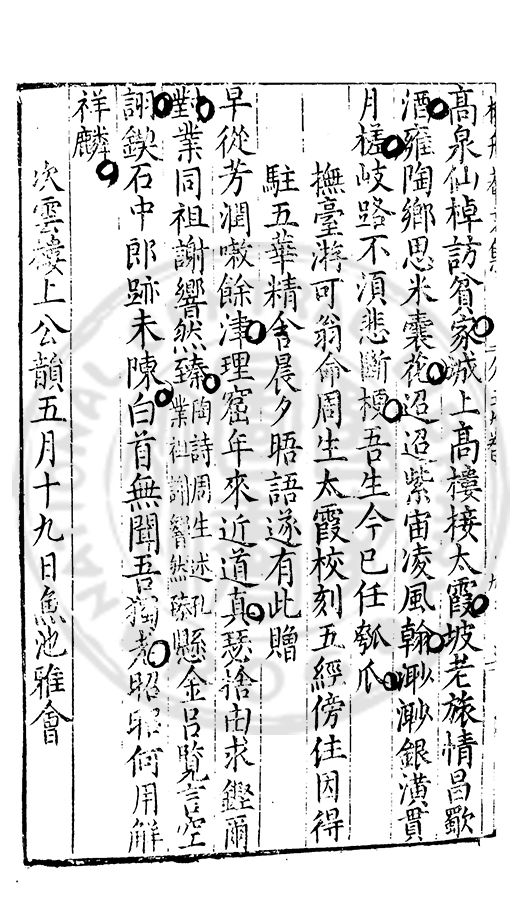 高泉仙棹訪貧家城上高樓接太霞坡老旅情昌歜
酒雍陶鄉思米囊花迢迢紫宙凌風翰渺渺銀潢貫
月槎岐路不須悲斷梗吾生今已任瓠瓜
撫臺游可翁侖周生太霞校刻五經傍住因得
駐五華精舍晨夕晤語遂有此贈
早從芳潤嗽餘津理窟年來近道真瑟捨由求鏗爾
對業同祖謝響然臻陶詩周生述孔業祖謝響然臻懸金呂覽言空
詡鍥石中郎跡未陳白首無聞吾獨老昭昭何用解
祥麟
次雲樓上公韻五月十九日魚池雅會